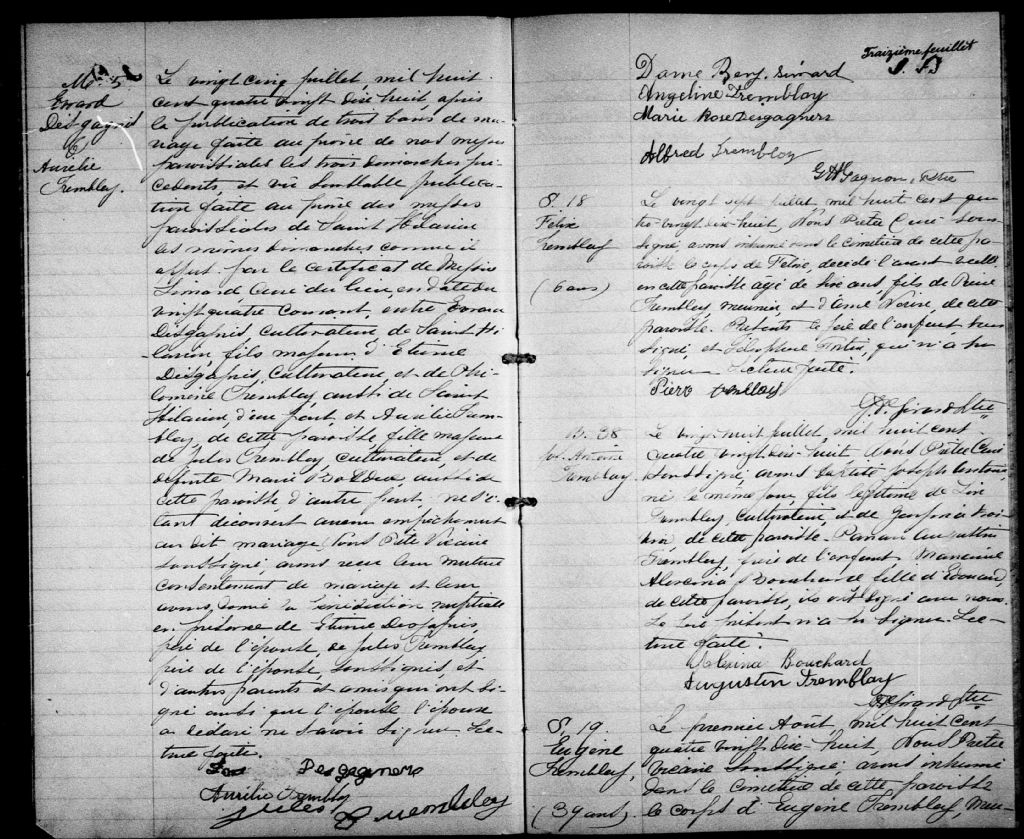 M. 5.
Evrard
Desgagnés
&
Aurélie
Tremblay.
Le vingt cinq juillet mil huit
cent quatre vingt dix huit, après
la publication de trois bans de ma-
riage faite au prône de nos messes
paroissiales les trois dimanches pré-
cédents, et vu semblable publica-
tion faite au prône des messes
paroissiales de Saint Hilarion
les mêmes dimanches comme il
appert par le certificat de Messire
Simard, Curé du lieu, en date du
vingt quatre courant, entre Evrard
Desgagnés, cultivateur de Saint Hi-
larion, fils majeur d'Etienne
Desgagnés, Cultivateur, et de Phi-
lomène Tremblay aussi de Saint
Hilarion, d'une part, et Aurélie Trem-
blay, de cette paroisse, fille majeure
de Jules Tremblay, cultivateur, et de
défunte Marie aussi de
cette paroisse, d'autre part, ne s'é-
tant découvert aucun empêchement
au dit mariage, Nous Prêtre Vicaire
soussigné avons reçu leur mutuel
consentement de mariage et leur
avons donné la bénédiction nuptiale
en présence de Etienne Desgagnés,
père de l'époux, de Jules Tremblay,
père de l'épouse, soussignés, et
d'autres parents et amis qui ont si-
gné ainsi que l'épouse l'époux
a déclaré ne savoir signer. Lec-
ture faite.
Desgagners
Aurélie Tremblay
Jules Tremblay
Traizième feuillet
Dame Benj. Simard
Angeline Tremblay
Marie Rose Desgagners
Alfred Tremblay
Gagnon, Ptre
S. 18
Félix
Tremblay
(6 ans)
Le vingt sept juillet mil huit cent qua-
tre vingt dix-huit, Nous Prêtre Curé sous-
signé, avons inhumé dans le cimetière de cette pa-
roisse le corps de Félix, décédé l'avant veille
en cette paroisse âgé de six ans, fils de Pierre
Tremblay, meunier, et d' de cette
paroisse. Présents le père de l'enfant sous-
signé, et Télesphore Fortin, qui n'a su
signer. Lecture faite.
Piere Tremblay
Girard Ptre
B. 28
Jos. Antoine
Tremblay.
Le vingt huit juillet, mil huit cent
quatre vingt dix-huit Nous Prêtre Curé
soussigné, avons baptisé Joseph Antoine,
né le même jour, fils légitime de
Tremblay, cultivateur, et de
de cette paroisse. Parrain Augustin
Tremblay, frère de l'enfant Marraine
Alexina Bouchard fille d'Edouard,
de cette paroisse, ils ont signé avec nous.
Le père présent n'a su signer. Lec-
ture faite.
Alexina Bouchard
Augustin Tremblay
Girard Ptre
S. 19.
Eugène
Tremblay,
(39 ans).
Le premier Août, mil huit cent
quatre vingt dix-huit, Nous Prêtre
Vicaire soussigné avons inhumé
dans le cimetière de cette paroisse
le corps d'Eugène Tremblay,